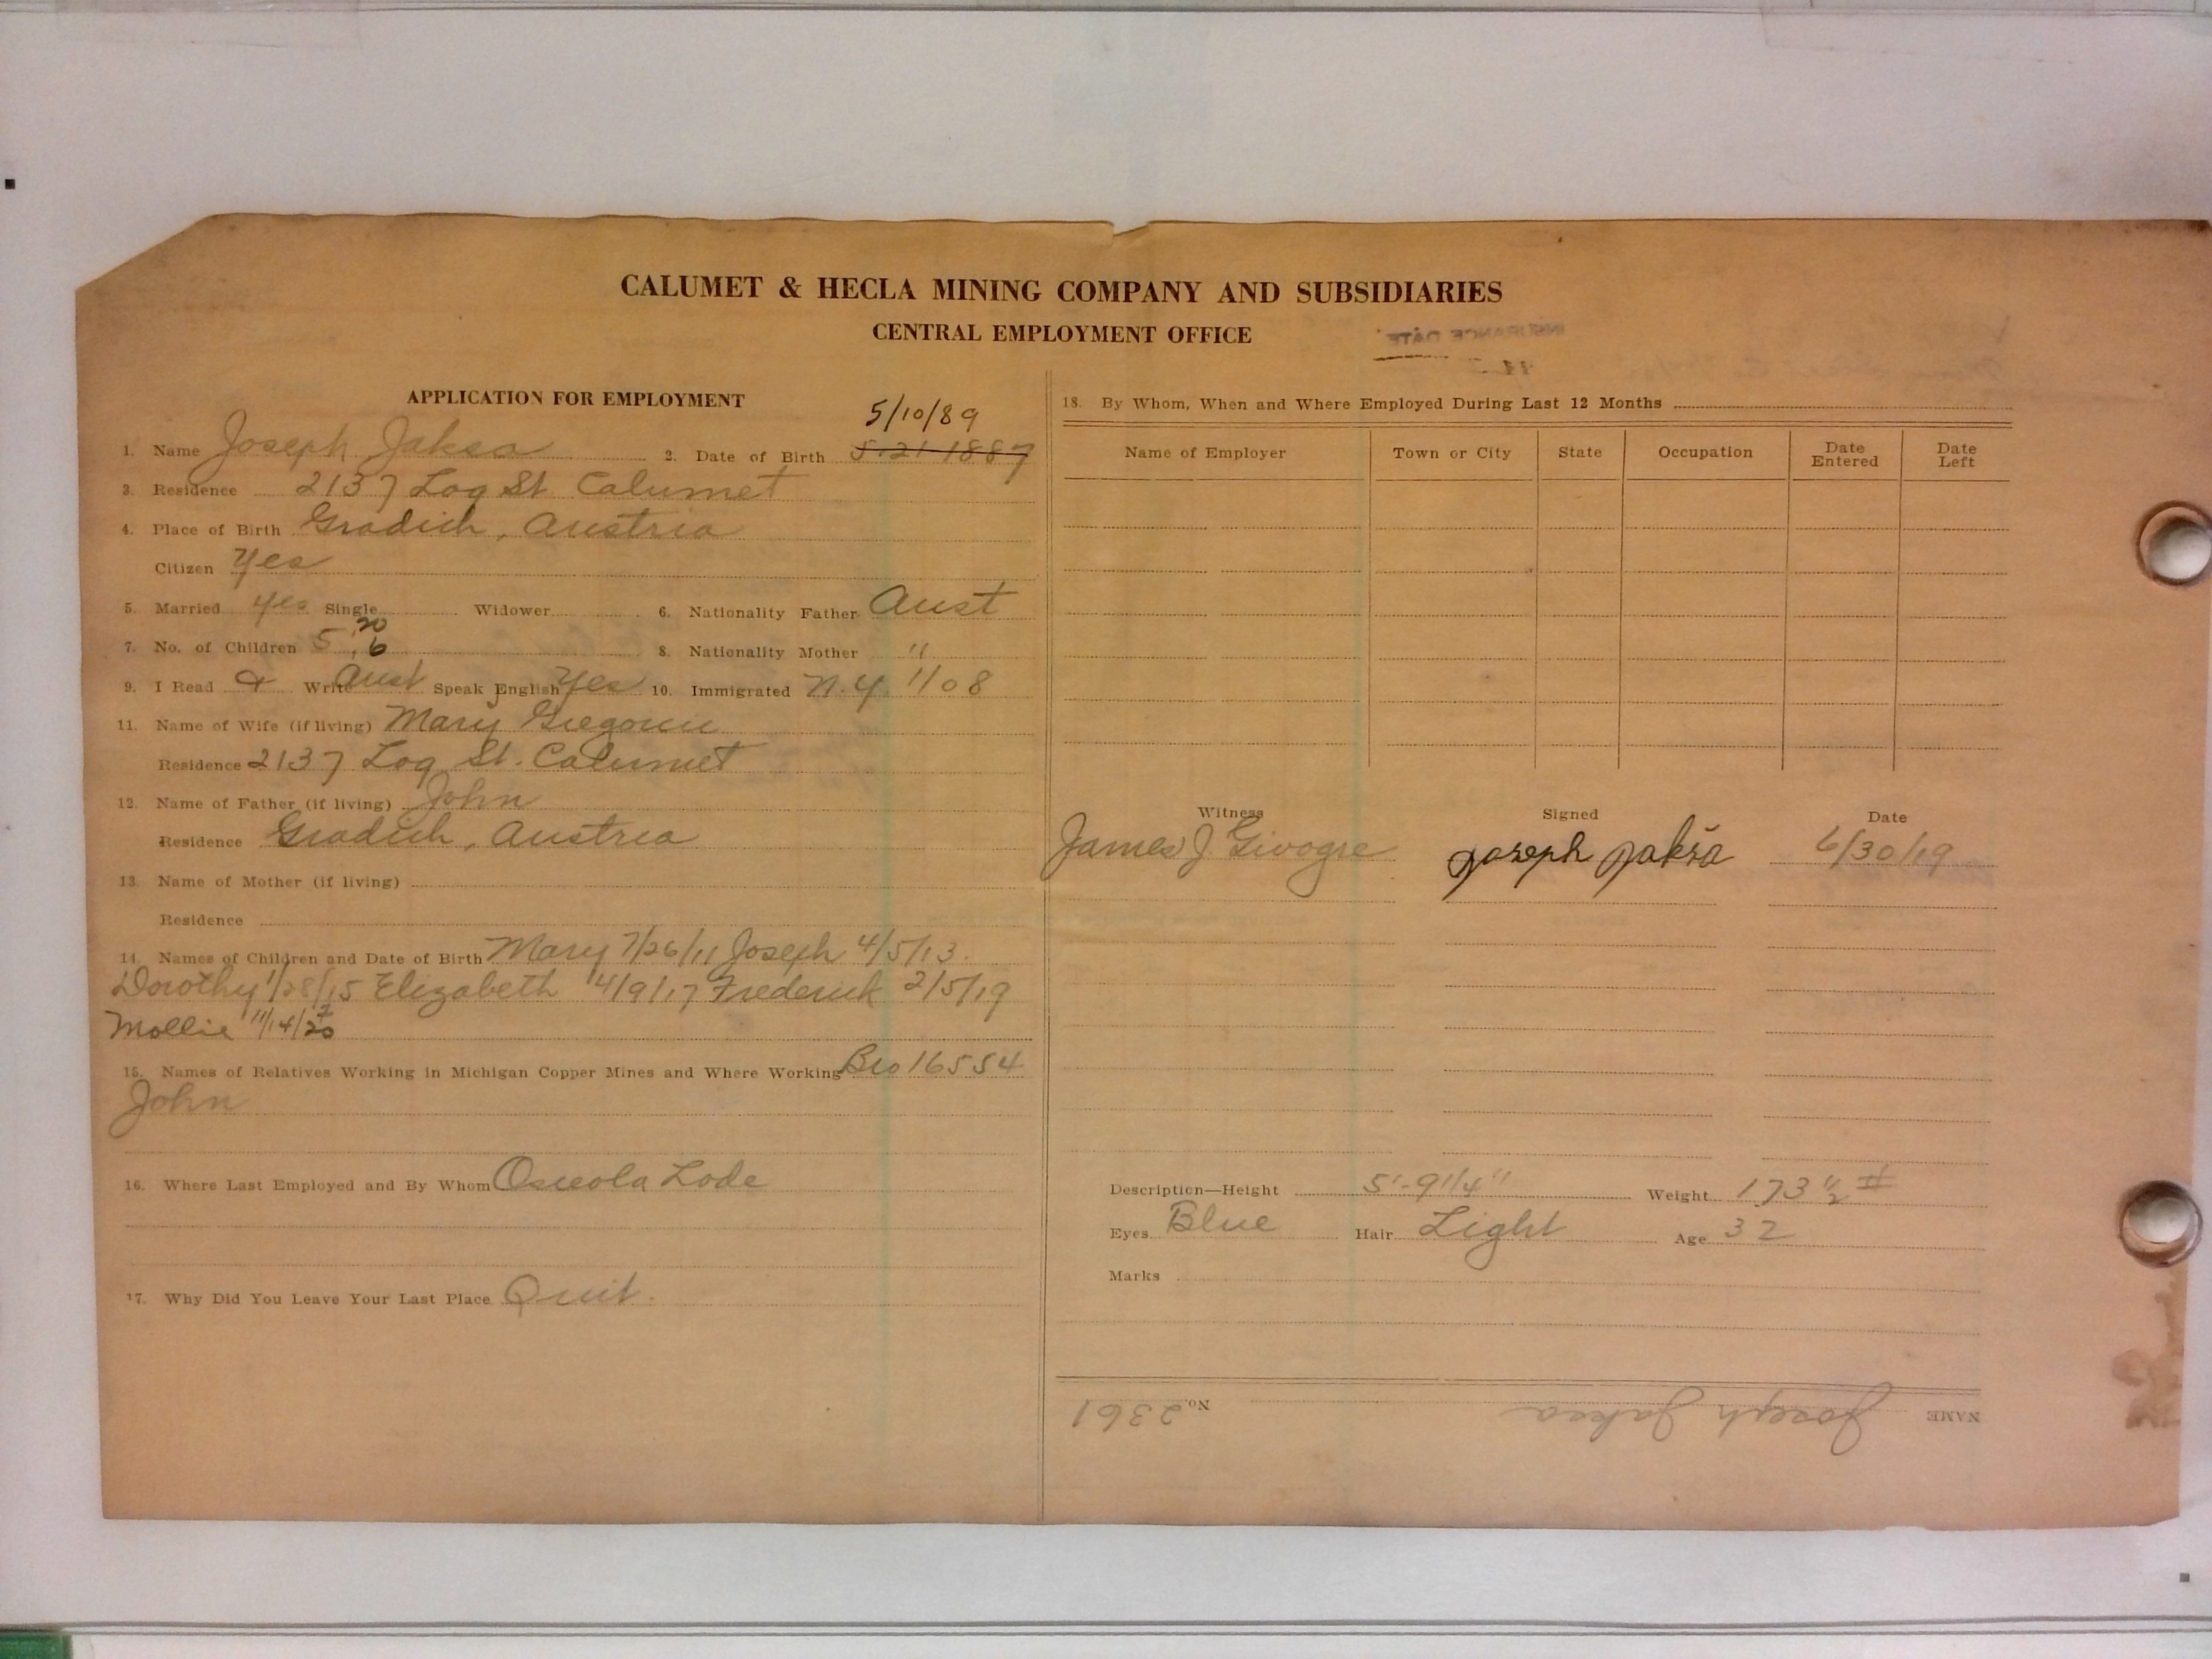 CALUMET & HECLA MINING COMPANY AND SUBSIDIARIES
CENTRAL EMPLOYMENT OFFICE
INSURANCE DATE
APPLICATION FOR EMPLOYMENT
5/10/89
1. Name Joseph Jaksa 2. Date of Birth 5-21-1887
3. Residence 2137 Log St. Calumet
4. Place of Birth Gradich, Austria
Citizen Yes
5. Married yes Single Widower 6. Nationality Father Aust
20
7. No. of Children 5, 6 8. Nationality Mother "
9. I Read & Write Aust Speak English Yes 10. Immigrated N.Y. 1/08
11. Name of Wife (if living) Mary
Residence 2137 Log St. Calumet
12. Name of Father (if living) John
Residence Gradich, Austria
13. Name of Mother (if living)
Residence
14. Names of Children and Date of Birth Mary 7/26/11 Joseph 4/5/13.
Dorothy 1/28/15 Elizabeth 4/9/17 Frederick 2/5/19
Mollie 11/14/20
15. Names of Relatives Working in Michigan Copper Mines and Where Working Bro 16554
John
16. Where Last Employed and By Whom Osceola Lode
17. Why Did You Leave Your Last Place Quit.
18. By Whom, When and Where Employed During Last 12 Months
Name of Employer Town or City State Occupation Date Entered Date Left
Witness Signed Date
James J. Joseph Jakša 6/30/19
Description—Height 5'-9 1/4" Weight 173 1/2 #
Eyes Blue Hair Light Age 32
Marks
NAME Joseph Jaksa No. 2361